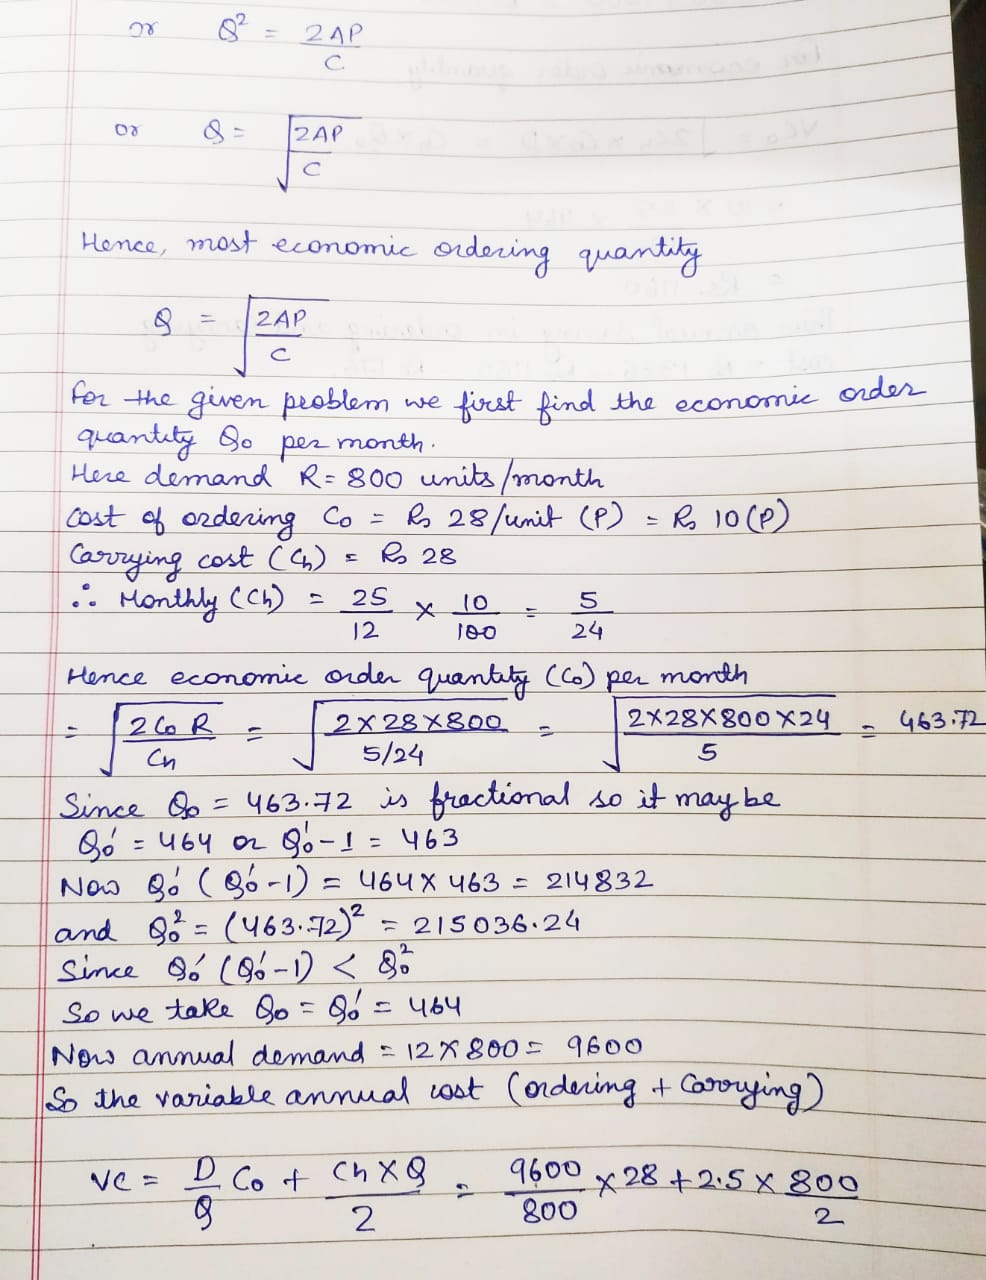 or Q² = 2AP / C
or Q = √(2AP / C)
Hence, most economic ordering quantity
Q = √(2AP / C)
For the given problem we first find the economic order
quantity Q₀ per month.
Here demand R = 800 units/month
Cost of ordering C₀ = Rs 28/unit (P) = Rs 10 (P)
Carrying cost (Ch) = Rs 28
∴ Monthly (Ch) = 25/12 × 10/100 = 5/24
Hence economic order quantity (C₀) per month
= √(2C₀R / Ch) = √(2×28×800 / 5/24) = √(2×28×800×24 / 5) = 463.72
Since Q₀ = 463.72 is fractional so it may be
Q₀' = 464 or Q₀'-1 = 463
Now Q₀' (Q₀'-1) = 464 × 463 = 214832
and Q₀² = (463.72)² = 215036.24
Since Q₀' (Q₀'-1) < Q₀²
So we take Q₀ = Q₀' = 464
Now annual demand = 12×800 = 9600
So the variable annual cost (ordering + Carrying)
VC = D/Q C₀ + Ch×Q / 2 = 9600/800 × 28 + 2.5 × 800/2